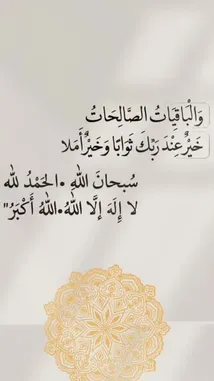 وَالْبَاقِيَاتُ الصَّالِحَاتُ
خَيْرٌ عِنْدَ رَبِّكَ ثَوَابًا وَخَيْرٌ أَمَلا
سُبحانَ اللهِ •الحَمْدُ لله
لا إِلَهَ إلَّا اللهُ•اللهُ أَكْبَرُ"